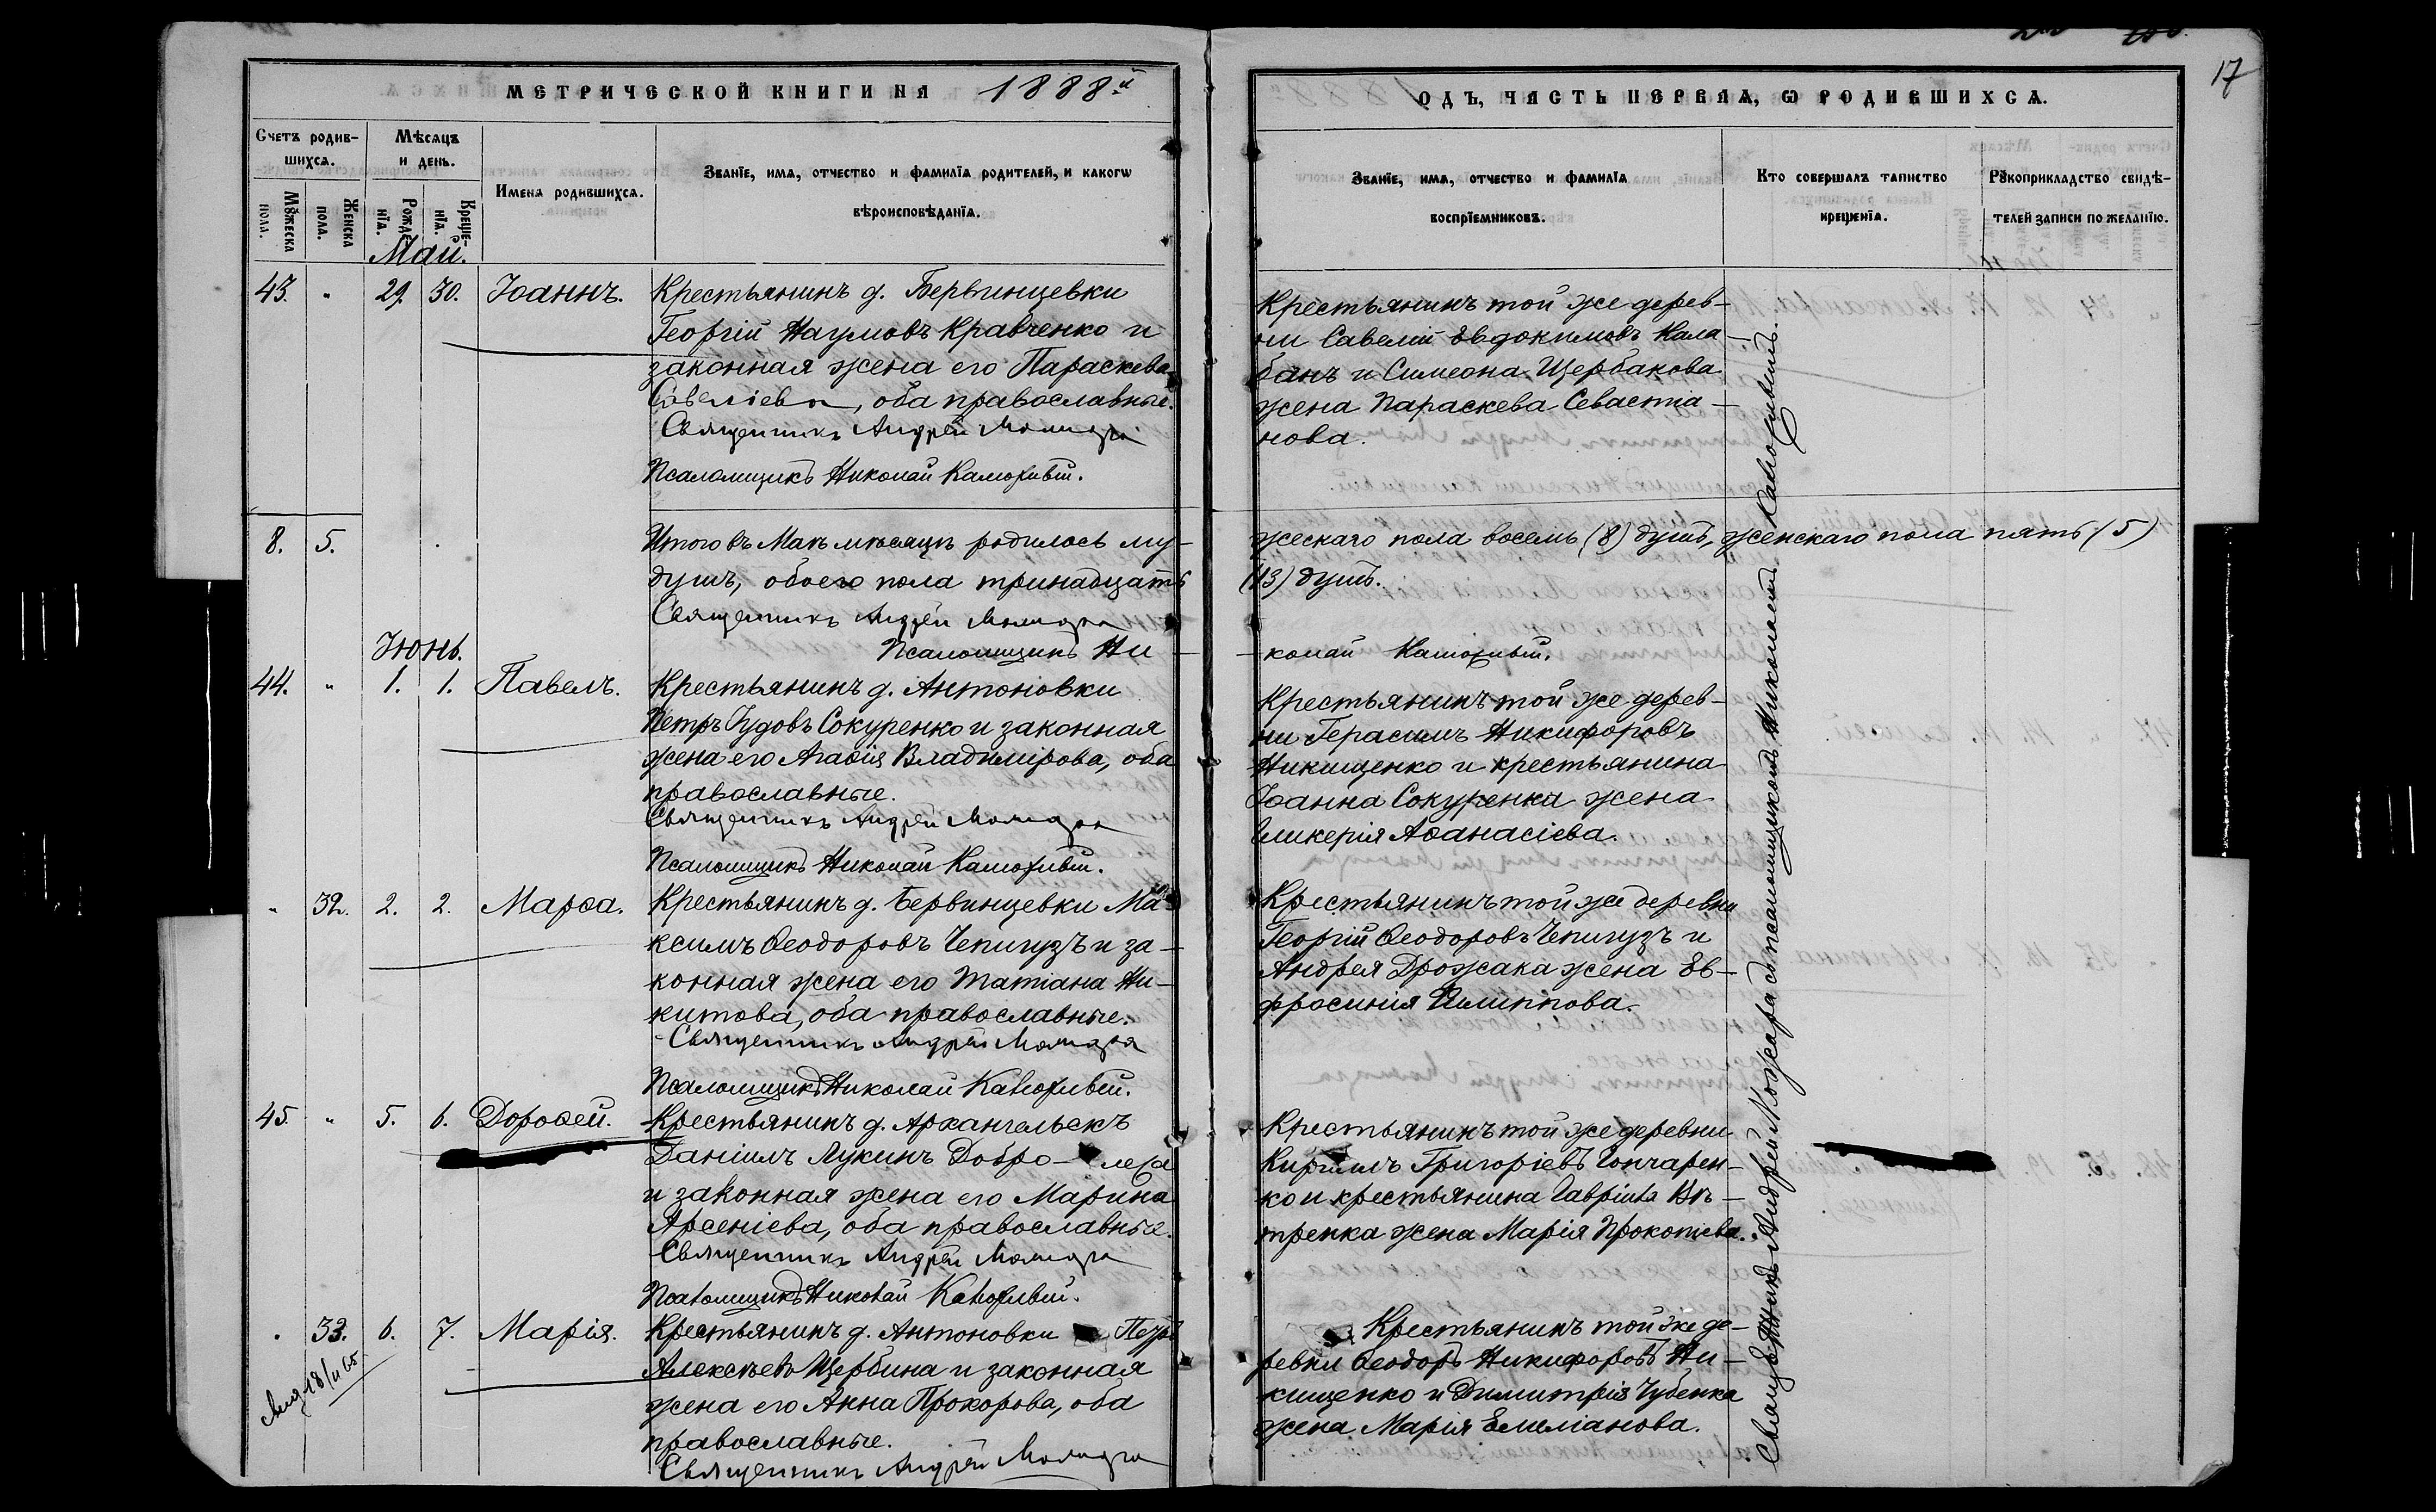 17
МЕТРИЧЕСКОЙ КНИГИ НА 1888й
ОДЪ, ЧАСТЬ ПЕРВАЯ, Ѡ РОДИВШИХСѦ.
Счетъ родив-
шихсѧ.
Мѣсѧцъ
и день.
Мꙋжеска
пола.
Женска
пола.
Рожде-
нїѧ.
Креще-
нїѧ.
Имена родившихсѧ.
Званїе, имѧ, отчество и фамилїѧ родителей, и какогѡ
вѣроисповѣданїѧ.
Званїе, имѧ, отчество и фамилїѧ
воспрїемниковъ.
Кто совершалъ таинство
крещенїѧ.
Рꙋкоприкладство свидѣ-
телей записи по желанїю.
Май.
43. " 29. 30. Іоаннъ.
Крестьянинъ д. Бервинцевки
Георгій Наумовъ Кравченко и
законная жена его Параскева
Савеліева, оба православные.
Священникъ Андрей
Псаломщикъ Николай
Крестьянинъ той же дерев-
ни Савелій Евдокимовъ Кала-
банъ и Симеона Щербакова
жена Параскева Севастіа-
нова.
8. 5.
Итого въ Маѣ мѣсяцѣ родилось му-
жескаго пола восемь (8) душъ, женскаго пола пять (5)
душъ, обоего пола тринадцать
(13) душъ.
Священникъ Андрей
Псаломщикъ Ни-
колай
Іюнь.
44. " 1. 1. Павелъ.
Крестьянинъ д. Антоновки
Петръ Іудовъ Сокуренко и законная
жена его Агафія Владимірова, оба
православные.
Священникъ Андрей
Псаломщикъ Николай
Крестьянинъ той же дерев-
ни Герасимъ Никифоровъ
Никищенко и крестьянина
Іоанна Сокуренка жена
Гликерія Аѳанасіева.
" 32. 2. 2. Марѳа.
Крестьянинъ д. Бервинцевки Ма-
ксимъ Ѳеодоровъ Чепигузъ и за-
конная жена его Татіана Ни-
китова, оба православные.
Священникъ Андрей
Псаломщикъ Николай
Крестьянинъ той же деревни
Георгій Ѳеодоровъ Чепигузъ и
Андрея Дрожака жена Ев-
фросинія Филиппова.
45. " 5. 6. Дороѳей.
Крестьянинъ д. Архангельскъ
Даніилъ Лукинъ Добро-
и законная жена его Марина
Арсеніева, оба православные.
Священникъ Андрей
Псаломщикъ Николай
Крестьянинъ той же деревни
Кириллъ Григоріевъ Гончарен-
ко и крестьянина Гавріила Вѣ-
тренка жена Марія Прокопіева.
" 33. 6. 7. Марія.
Крестьянинъ д. Антоновки Петръ
Алексѣевъ Щербина и законная
жена его Анна Прохорова, оба
православные.
Священникъ Андрей
Крестьянинъ той же де-
ревни Ѳеодоръ Никифоровъ Ни-
кищенко и Димитрія Чубенка
жена Марія Емеліанова.
Священникъ Андрей Можара съ псаломщикомъ Николаемъ